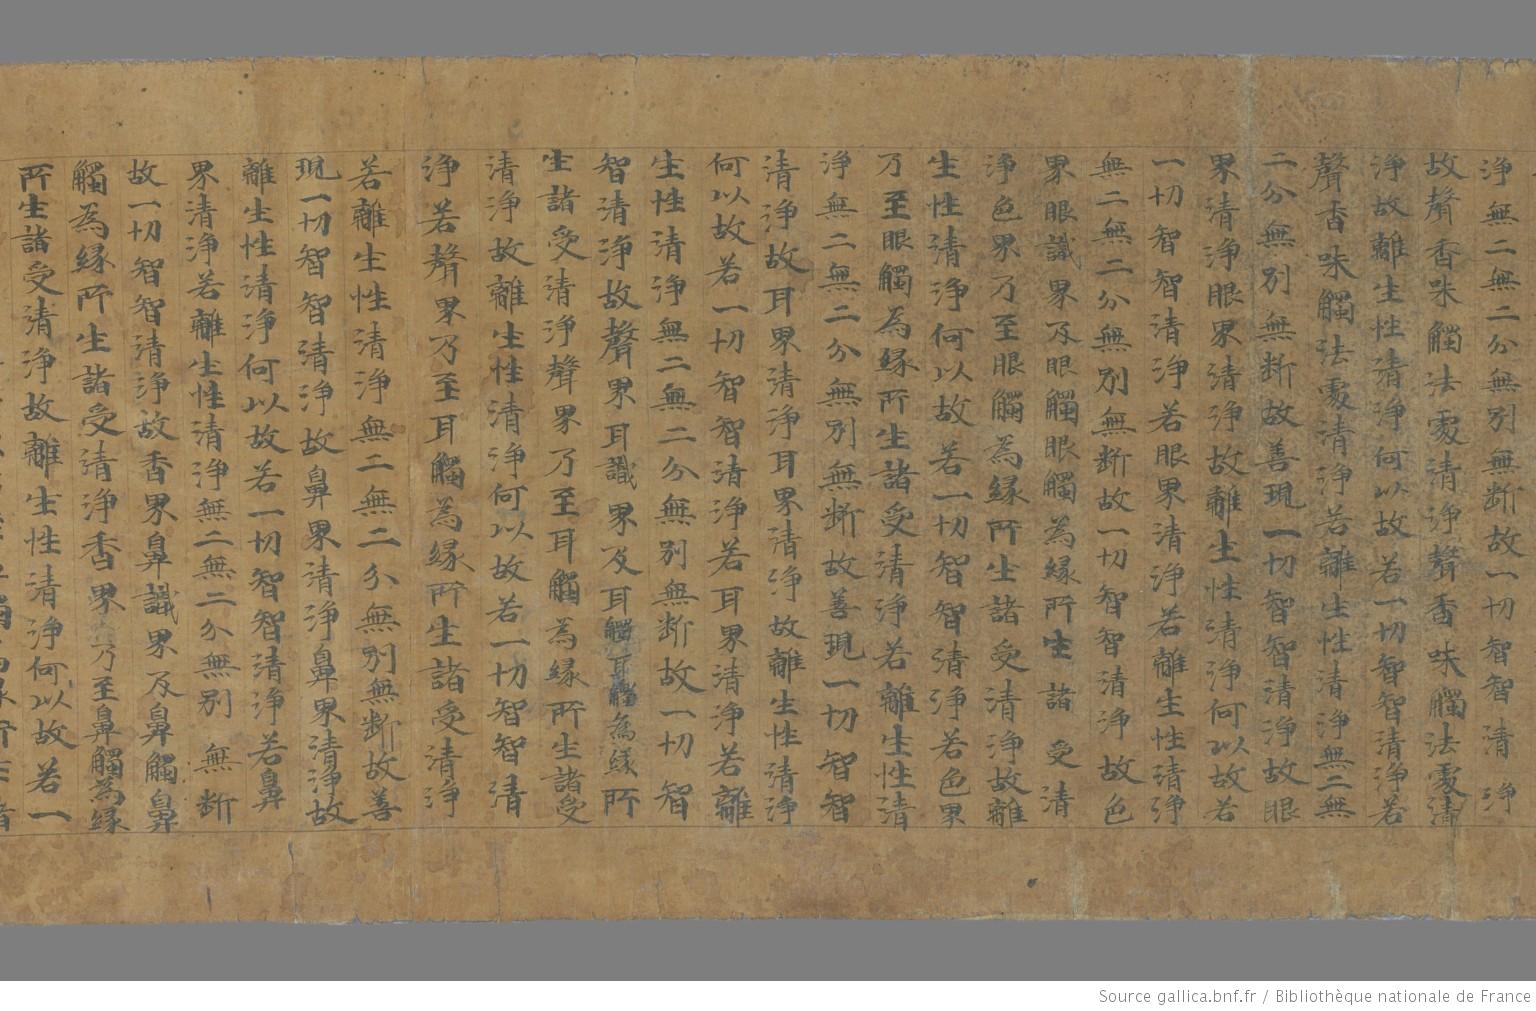 淨無二無二分無別無斷故一切智智清淨
故聲香味觸法處清淨聲香味觸法處清
淨故離生性清淨何以故若一切智智清淨若
聲香味觸法處清淨若離生性清淨無二無
二分無別無斷故善現一切智智清淨故眼
界清淨眼界清淨故離生性清淨何以故若
一切智智清淨若眼界清淨若離生性清淨
無二無二分無別無斷故一切智智清淨故色
界眼識界及眼觸眼觸為緣所生諸受清
淨色界乃至眼觸為緣所生諸受清淨故離
生性清淨何以故若一切智智清淨若色界
乃至眼觸為緣所生諸受清淨若離生性清
淨無二無二分無別無斷故善現一切智智
清淨故耳界清淨耳界清淨故離生性清淨
何以故若一切智智清淨若耳界清淨若離
生性清淨無二無二分無別無斷故一切智
智清淨故聲界耳識界及耳觸耳觸為緣所
生諸受清淨聲界乃至耳觸為緣所生諸受
清淨故離生性清淨何以故若一切智智清
淨若聲界乃至耳觸為緣所生諸受清淨
若離生性清淨無二無二分無別無斷故善
現一切智智清淨故鼻界清淨鼻界清淨故
離生性清淨何以故若一切智智清淨若鼻
界清淨若離生性清淨無二無二分無別無斷
故一切智智清淨故香界鼻識界及鼻觸鼻
觸為緣所生諸受清淨香界乃至鼻觸為緣
所生諸受清淨故離生性清淨何以故若一
Source gallica.bnf.fr / Bibliothèque nationale de France